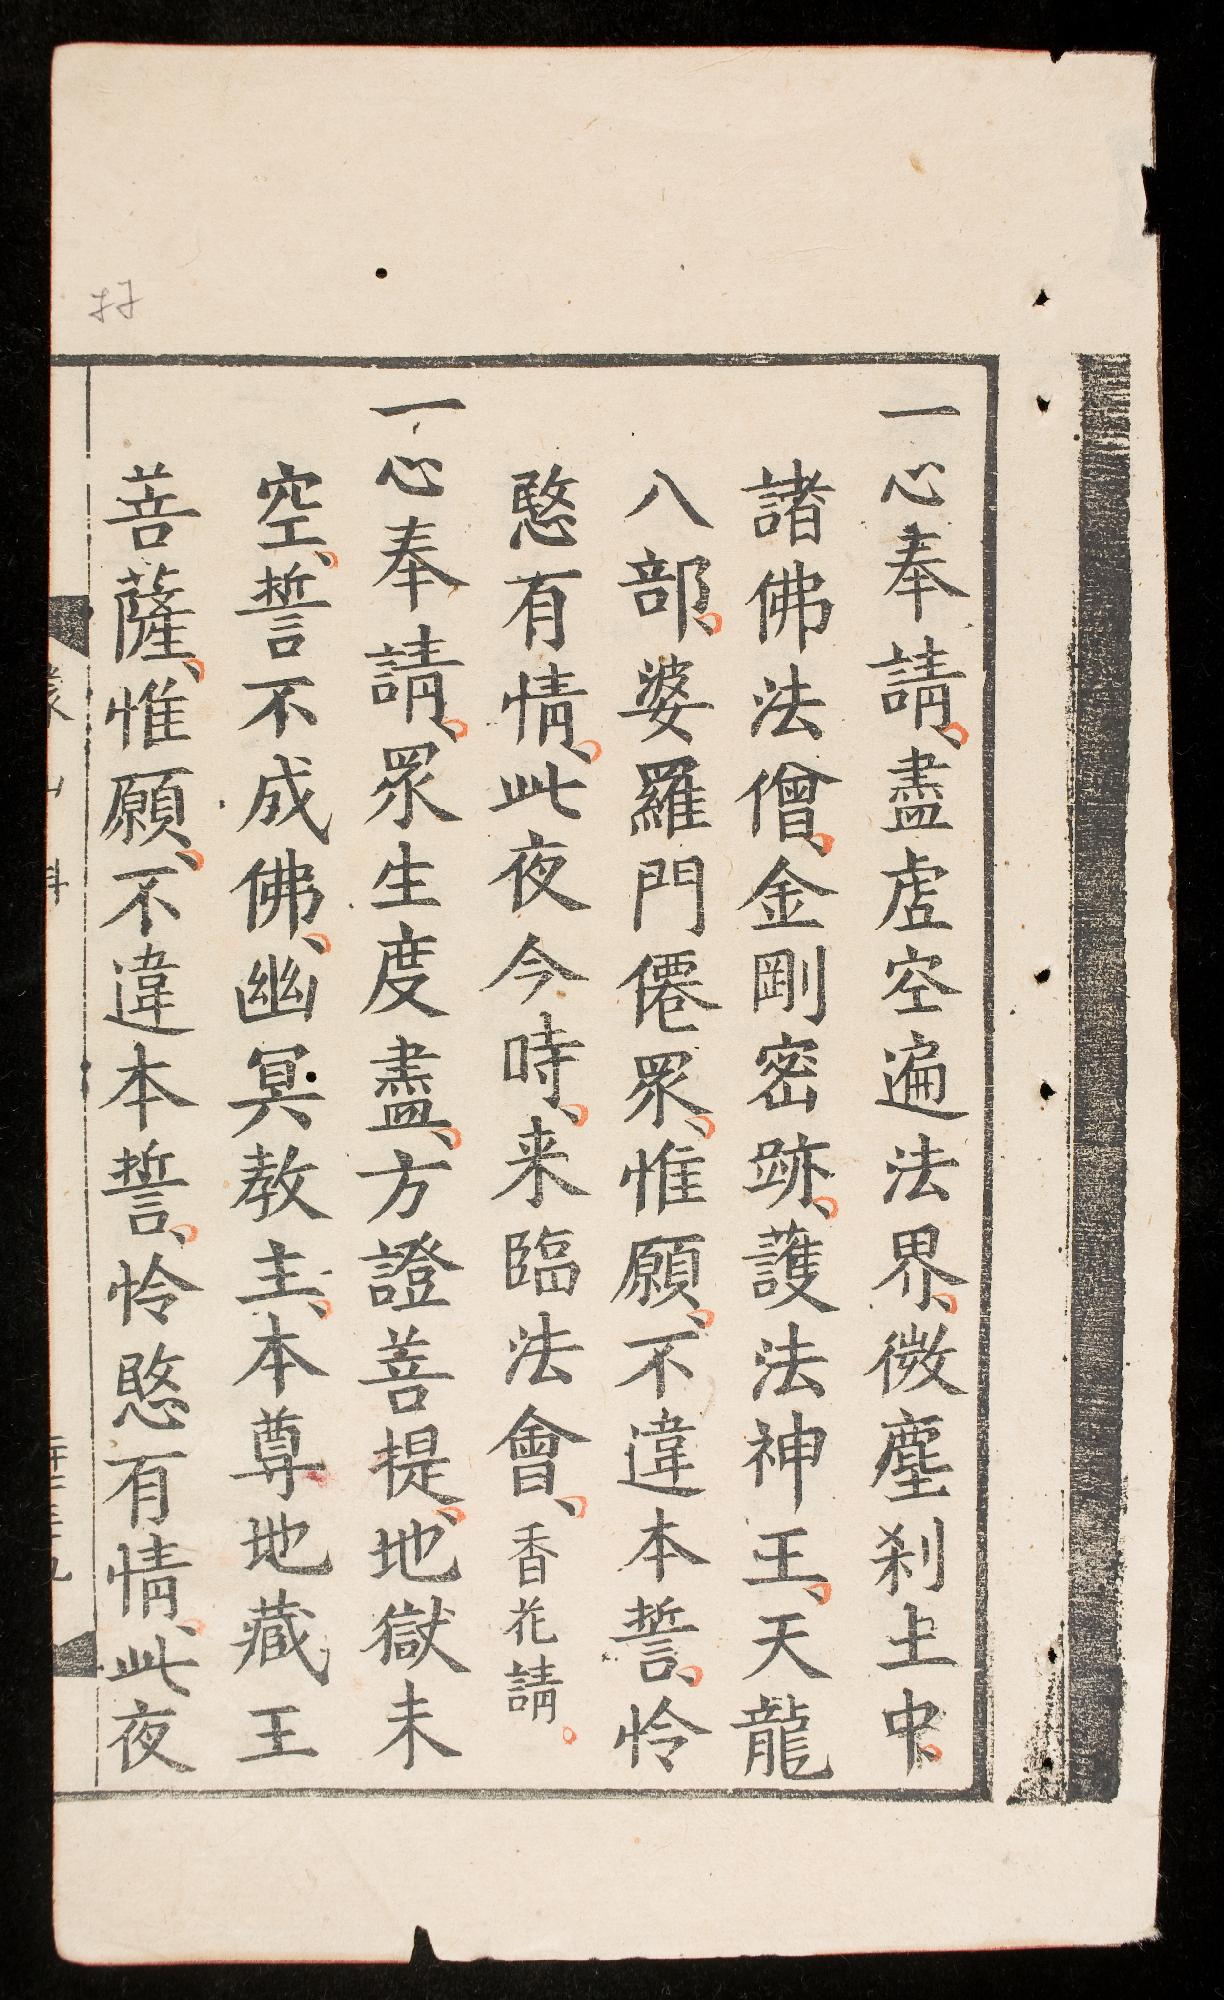 一心奉請、盡虛空遍法界、微塵刹土中、
諸佛法僧、金剛密跡、護法神王、天龍
八部、婆羅門僊眾、惟願、不違本誓、怜
愍有情、此夜今時、来臨法會、香花請。
一心奉請、眾生度盡、方證菩提、地獄未
空、誓不成佛、幽冥教主、本尊地藏王
菩薩、惟願、不違本誓、怜愍有情、此夜